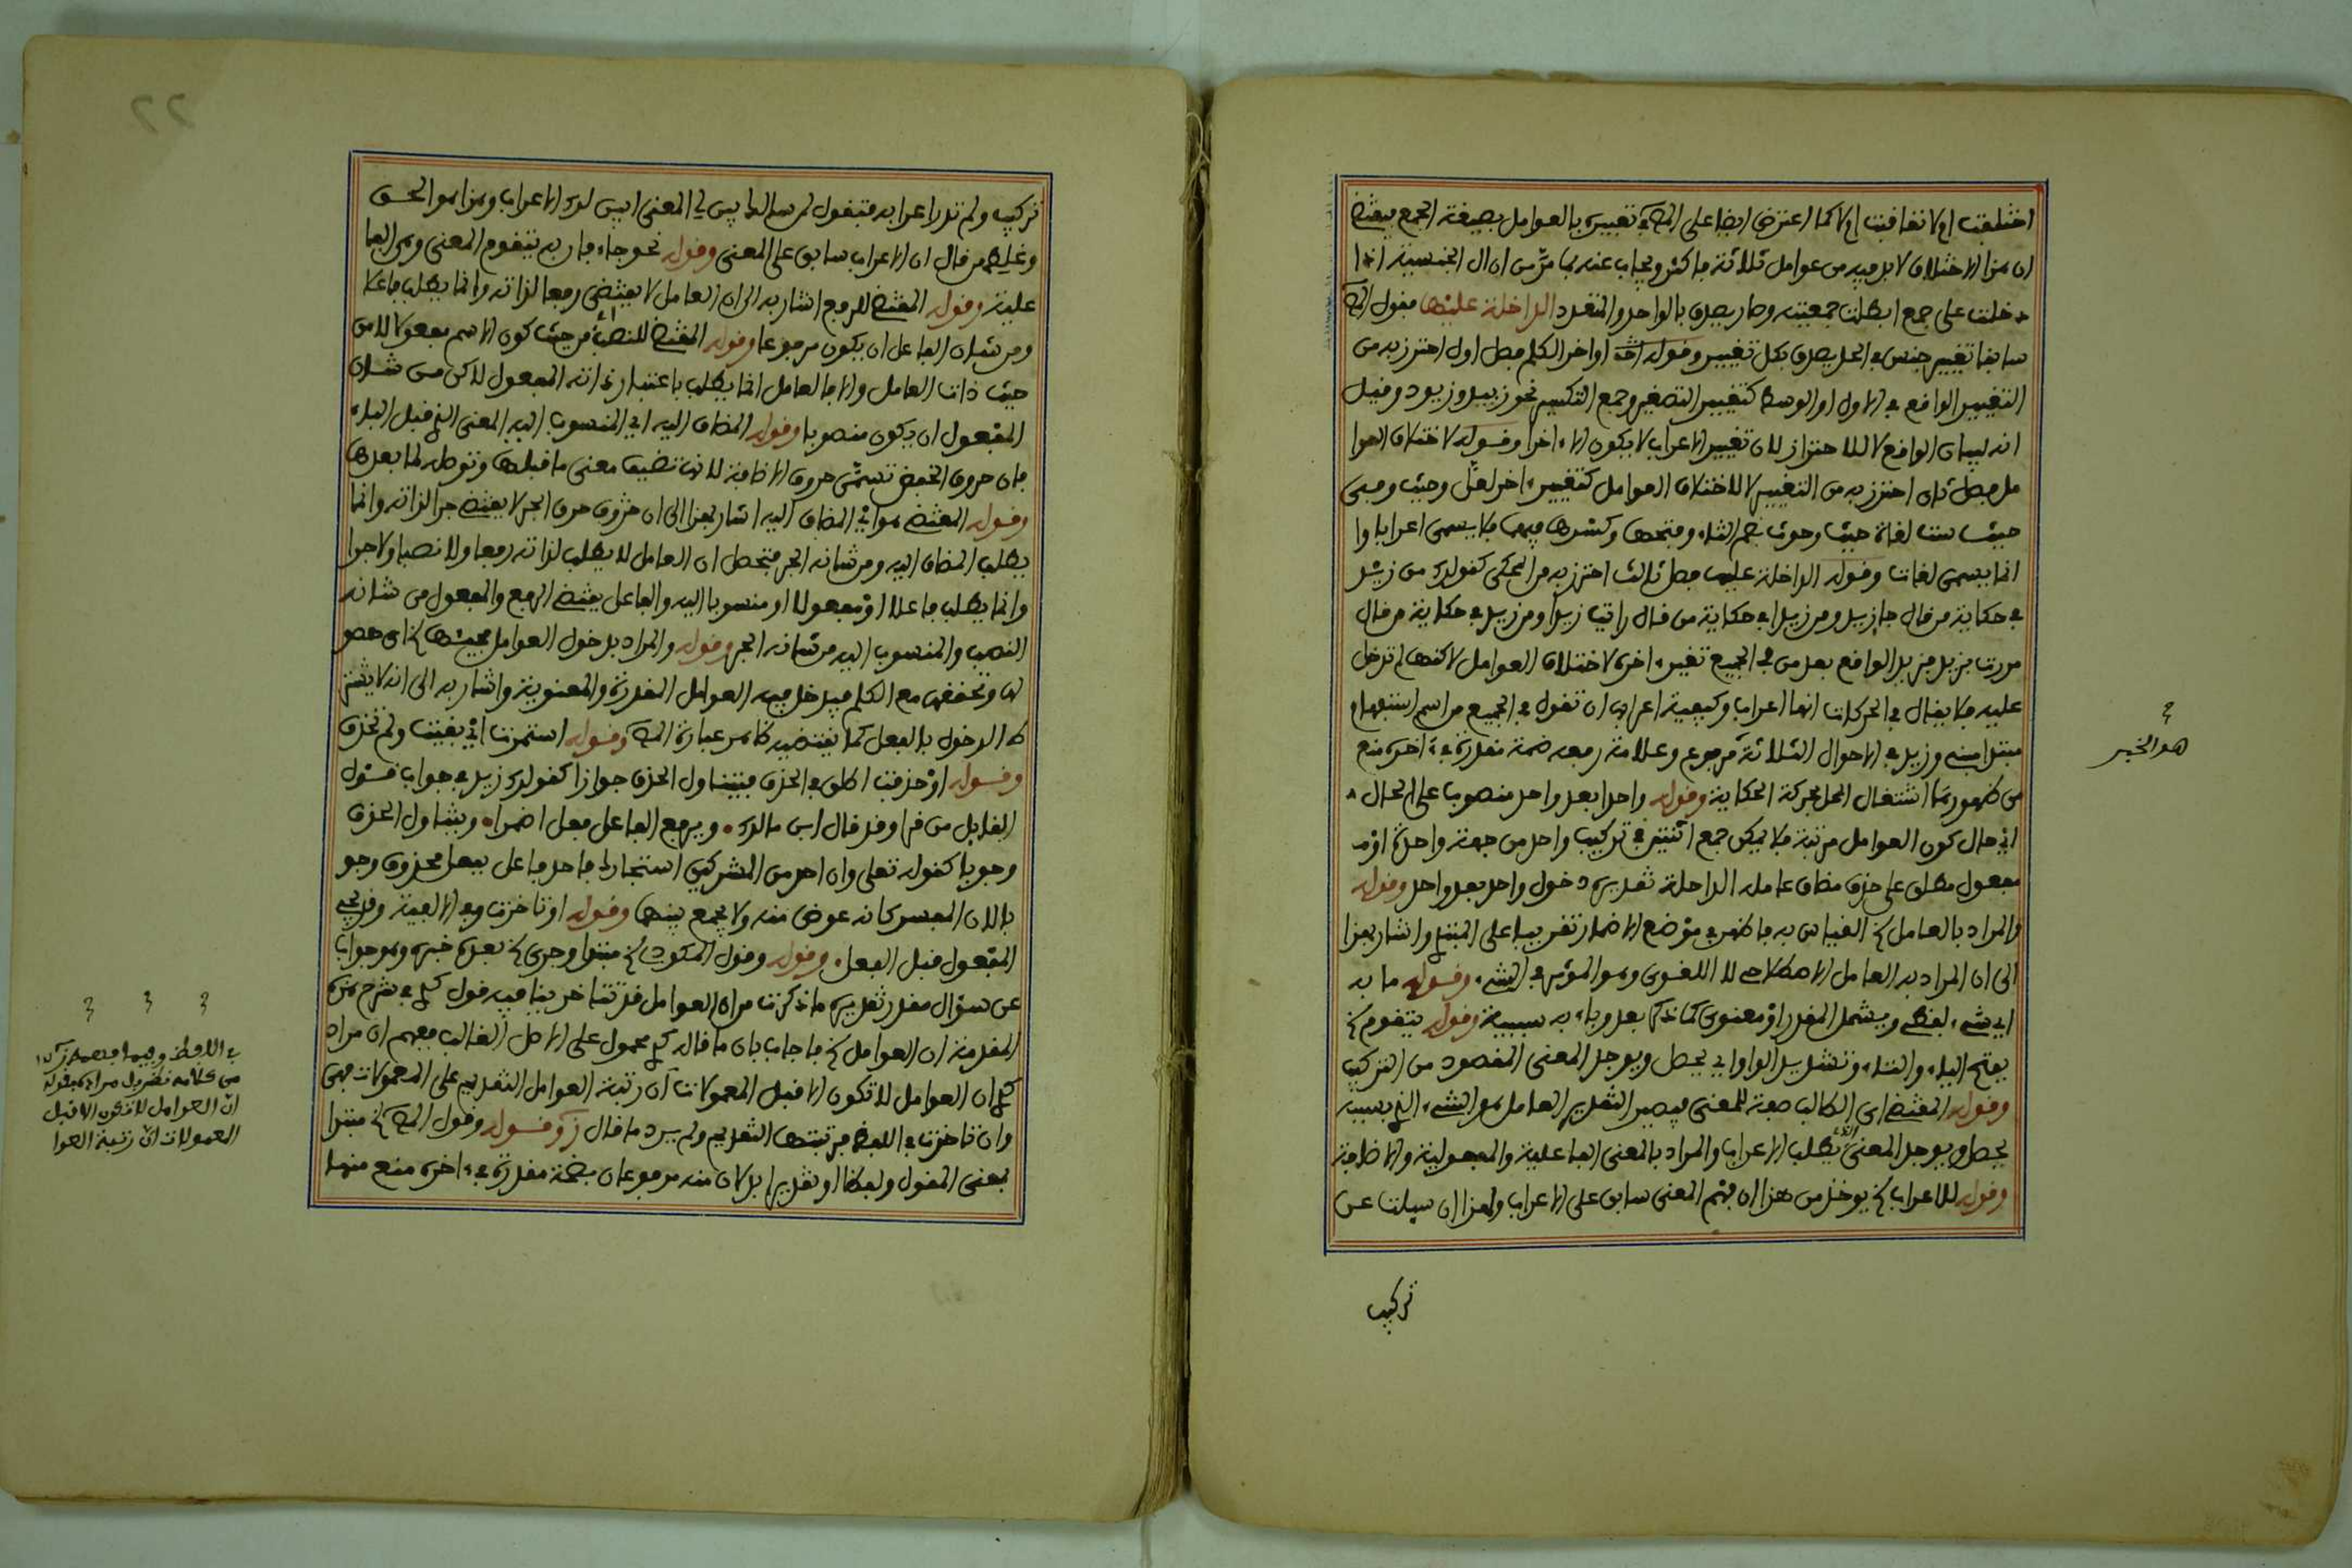 اختلفت او لا تعاقبت او لا كما اعترض ايضا على المص في تعبيره بالعوامل بصيغة الجمع يقتضي
ان هذا الاختلاف لا بد فيه من عوامل ثلاثة فاكثر ويجاب عنه بما مر من ان ال الجنسية اذا
دخلت على جمع ابطلت جمعيته وصار يصدق بالواحد والمتعدد الداخلة عليها فقول المص
سابقا تغيير جنس في الحد يصدق بكل تغيير وقوله اواخر الكلم فصل اول احترز به من
التغيير الواقع في الاول او الوسط كتغيير التصغير وجمع التكسير نحو زييد وزيود وقيل
انه لبيان الواقع لا للاحتراز لان تغيير الاعراب لا يكون الا ءاخرا وقوله لاختلاف العوا
مل فصل ثان احترز به من التغيير لا لاختلاف العوامل كتغيير ءاخر لعل وحيث وفي
حيث ست لغات حيث وحوث بضم الثاء وفتحها وكسرها فيهما فلا يسمى اعرابا وا
انما يسمى لغات وقوله الداخلة عليها فصل ثالث احترز به من المحكى كقولك من زيد
في حكاية من قال جا زيد ومن زيدا في حكاية من قال رايت زيدا ومن زيد في حكاية من قال
مررت بزيد فزيد الواقع بعد من في الجميع تغير ءاخره لاختلاف العوامل لاكنها لم تدخل
عليه فلا يقال في الحركات انها اعراب وكيفية اعرابه ان تقول في الجميع من اسم استفهام
مبتدا مبني وزيد في الاحوال الثلاثة مرفوع وعلامة رفعه ضمة مقدرة في ءاخره منع
من ظهورها اشتغال المحل بحركة الحكاية وقوله واحدا بعد واحد منصوب على الحال
اي حال كون العوامل مرتبة فلا يمكن جمع اثنين في تركيب واحد من جهة واحدة او
مفعول مطلق على حذف مضاف عامله الداخلة تقديره دخول واحد بعد واحد وقوله
والمراد بالعامل الخ القياس به فاظهر في موضع الاضمار تقريبا على المبتدي واشار بهذا
الى ان المراد به العامل الاصطلاحي لا اللغوي وهو المؤثر في الشيء وقوله ما به
اي شيء لفظي ويشمل المقدر او معنوي كما ذكره بعد وباء به سببية وقوله يتقوم الخ
بفتح الياء والتاء وتشديد الواو اي يحصل ويوجد المعنى المقصود من التركيب
وقوله المقتضي اي الطالب صفة للمعنى فيصير التقدير العامل هو الشيء الذي بسببه
يحصل ويوجد المعنى الذي يطلب الاعراب والمراد بالمعنى الفاعلية والمفعولية والاضافة
وقوله للاعراب الخ يوخذ من هذا ان فهم المعنى سابق على الاعراب ولهذا ان سيلت عن
تركيب
هو الخبر
٢٢
تركيب ولم تدر اعرابه فتقول لمن سالك ايس لي المعنى ابين لك الاعراب وهذا هو الحق
وغلط من قال ان الاعراب سابق على المعنى وقوله نحو جاء فان به يتقوم المعنى وهو الفا
علية وقوله المقتضي للرفع اشار به الى ان العامل لا يقتضي رفعا لذاته وانما يطلب فاعلا
ومن شان الفاعل ان يكون مرفوعا وقوله المقتضي للنصب اي من حيث كون الاسم مفعولا لا من
حيث ذات العامل والا فالعامل انما يطلب باعتبار ذاته المفعول لاكن من شان
المفعول ان يكون منصوبا وقوله المضاف اليه اي المنسوب اليه المعنى الذي قبل الباء
فان حروف الخفض تسمى حروف الاضافة لانها تضيف معنى ما قبلها وتوصله لما بعدها
وقوله المقتضي هو اي المضاف اليه اشار بهذا الى ان حروف الجر لا يقتضي جرا لذاته وانما
يطلب المضاف اليه ومن شانه الجر فتحصل ان العامل لا يطلب لذاته رفعا ولا نصبا ولا جرا
وانما يطلب فاعلا او مفعولا او منسوبا اليه والفاعل يقتضي الرفع والمفعول من شانه
النصب والمنسوب اليه من شانه الجر وقوله والمراد بدخول العوامل مجيئها الخ اي حصو
لها وتحققها مع الكلم فيدخل فيه العوامل المقدرة والمعنوية واشار به الى انه لا يشتر
ط الدخول بالفعل كما يقتضيه ظاهر عبارة المص وقوله استمرت اي بقيت ولم تحذف
وقوله او حذفت اطلق في الحذف فيتناول الحذف جوازا كقولك زيد في جواب قول
القايل من قرا وقد قال ابن مالك ويرفع الفاعل فعل اضمرا ويتناول الحذف
وجوبا كقوله تعلى وان احد من المشركين استجارك فاحد فاعل بفعل محذوف وجو
با لان المفسر كانه عوض منه ولا يجمع بينهما وقوله او تاخرت وفي الالفية وقد يجي
المفعول قبل الفعل وقوله وقول المكودي الخ مبتدا وجرى الخ بعده خبره وهو جواب
عن سؤال مقدر تقديره ما ذكرت من ان العوامل قد تتاخر ينافيه قول في شرح هذه
المقدمة ان العوامل الخ فاجاب بان ما قاله محمول على الاصل الغالب فيفهم ان مراد
ان العوامل لا تكون الا قبل المعمولات ان رتبة العوامل التقديم على المعمولات فهي
وان تاخرت في اللفظ مرتبتها التقديم ولم يرد ما قال وقوله وقول المص الخ مبتدا
بمعنى المقول ولفظا او تقديرا بدلان منه مرفوعان بضمة مقدرة في ءاخره منع منها
في اللفظ
من كلامه
ان العوامل لا تكون الا قبل
المعمولات ان رتبة العوا